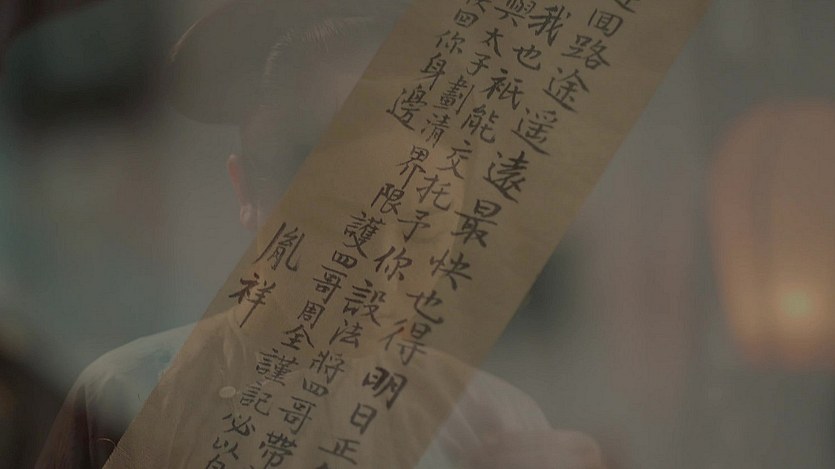 回路途遥遠最快也得明日正
我也祇能交托予你設法將四哥帶
與太子劃清界限護四哥周全謹記必以
回你身邊
胤祥